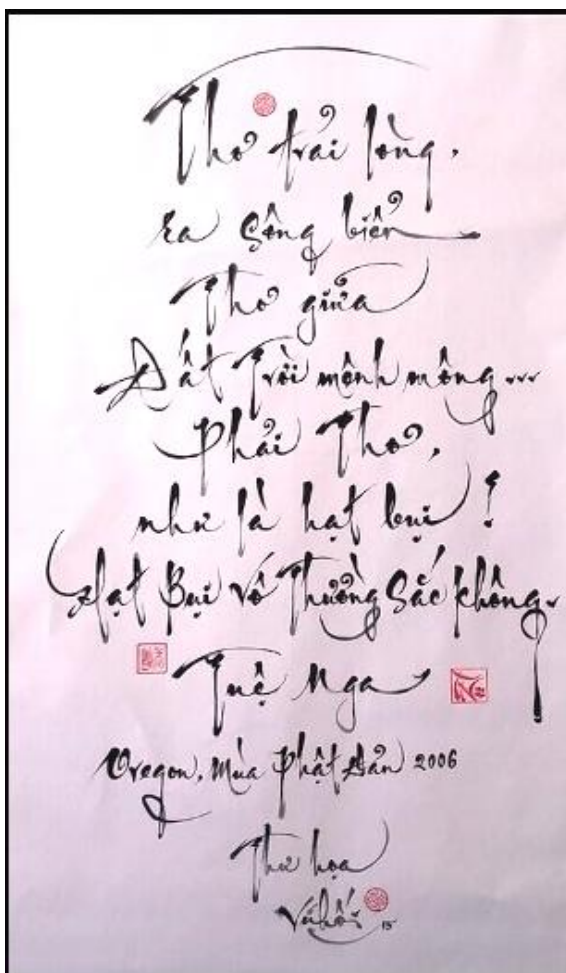 Thơ trải lòng,
ra sông biển
Thơ giữa
Đất Trời mênh mông...
Phải Thơ,
như là hạt bụi!
Hạt Bụi Vô Thường Sắc Không.
Tuệ Nga
Oregon, Mùa Phật Đản 2006
Thư họa
Vũ Hối 15